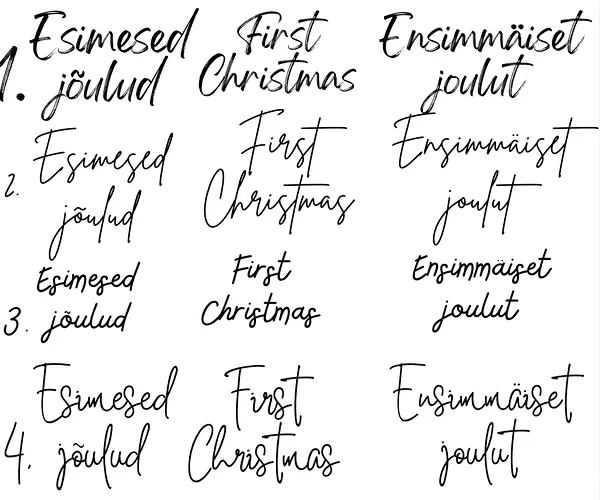 1. Esimesed First Ensimmäiset
jõulud Christmas joulut
2. Esimesed First Ensimmäiset
jõulud Christmas joulut
Esimesed First Ensimmäiset
3. jõulud Christmas joulut
Esimesed First Ensimmäiset
4. jõulud Christmas joulut